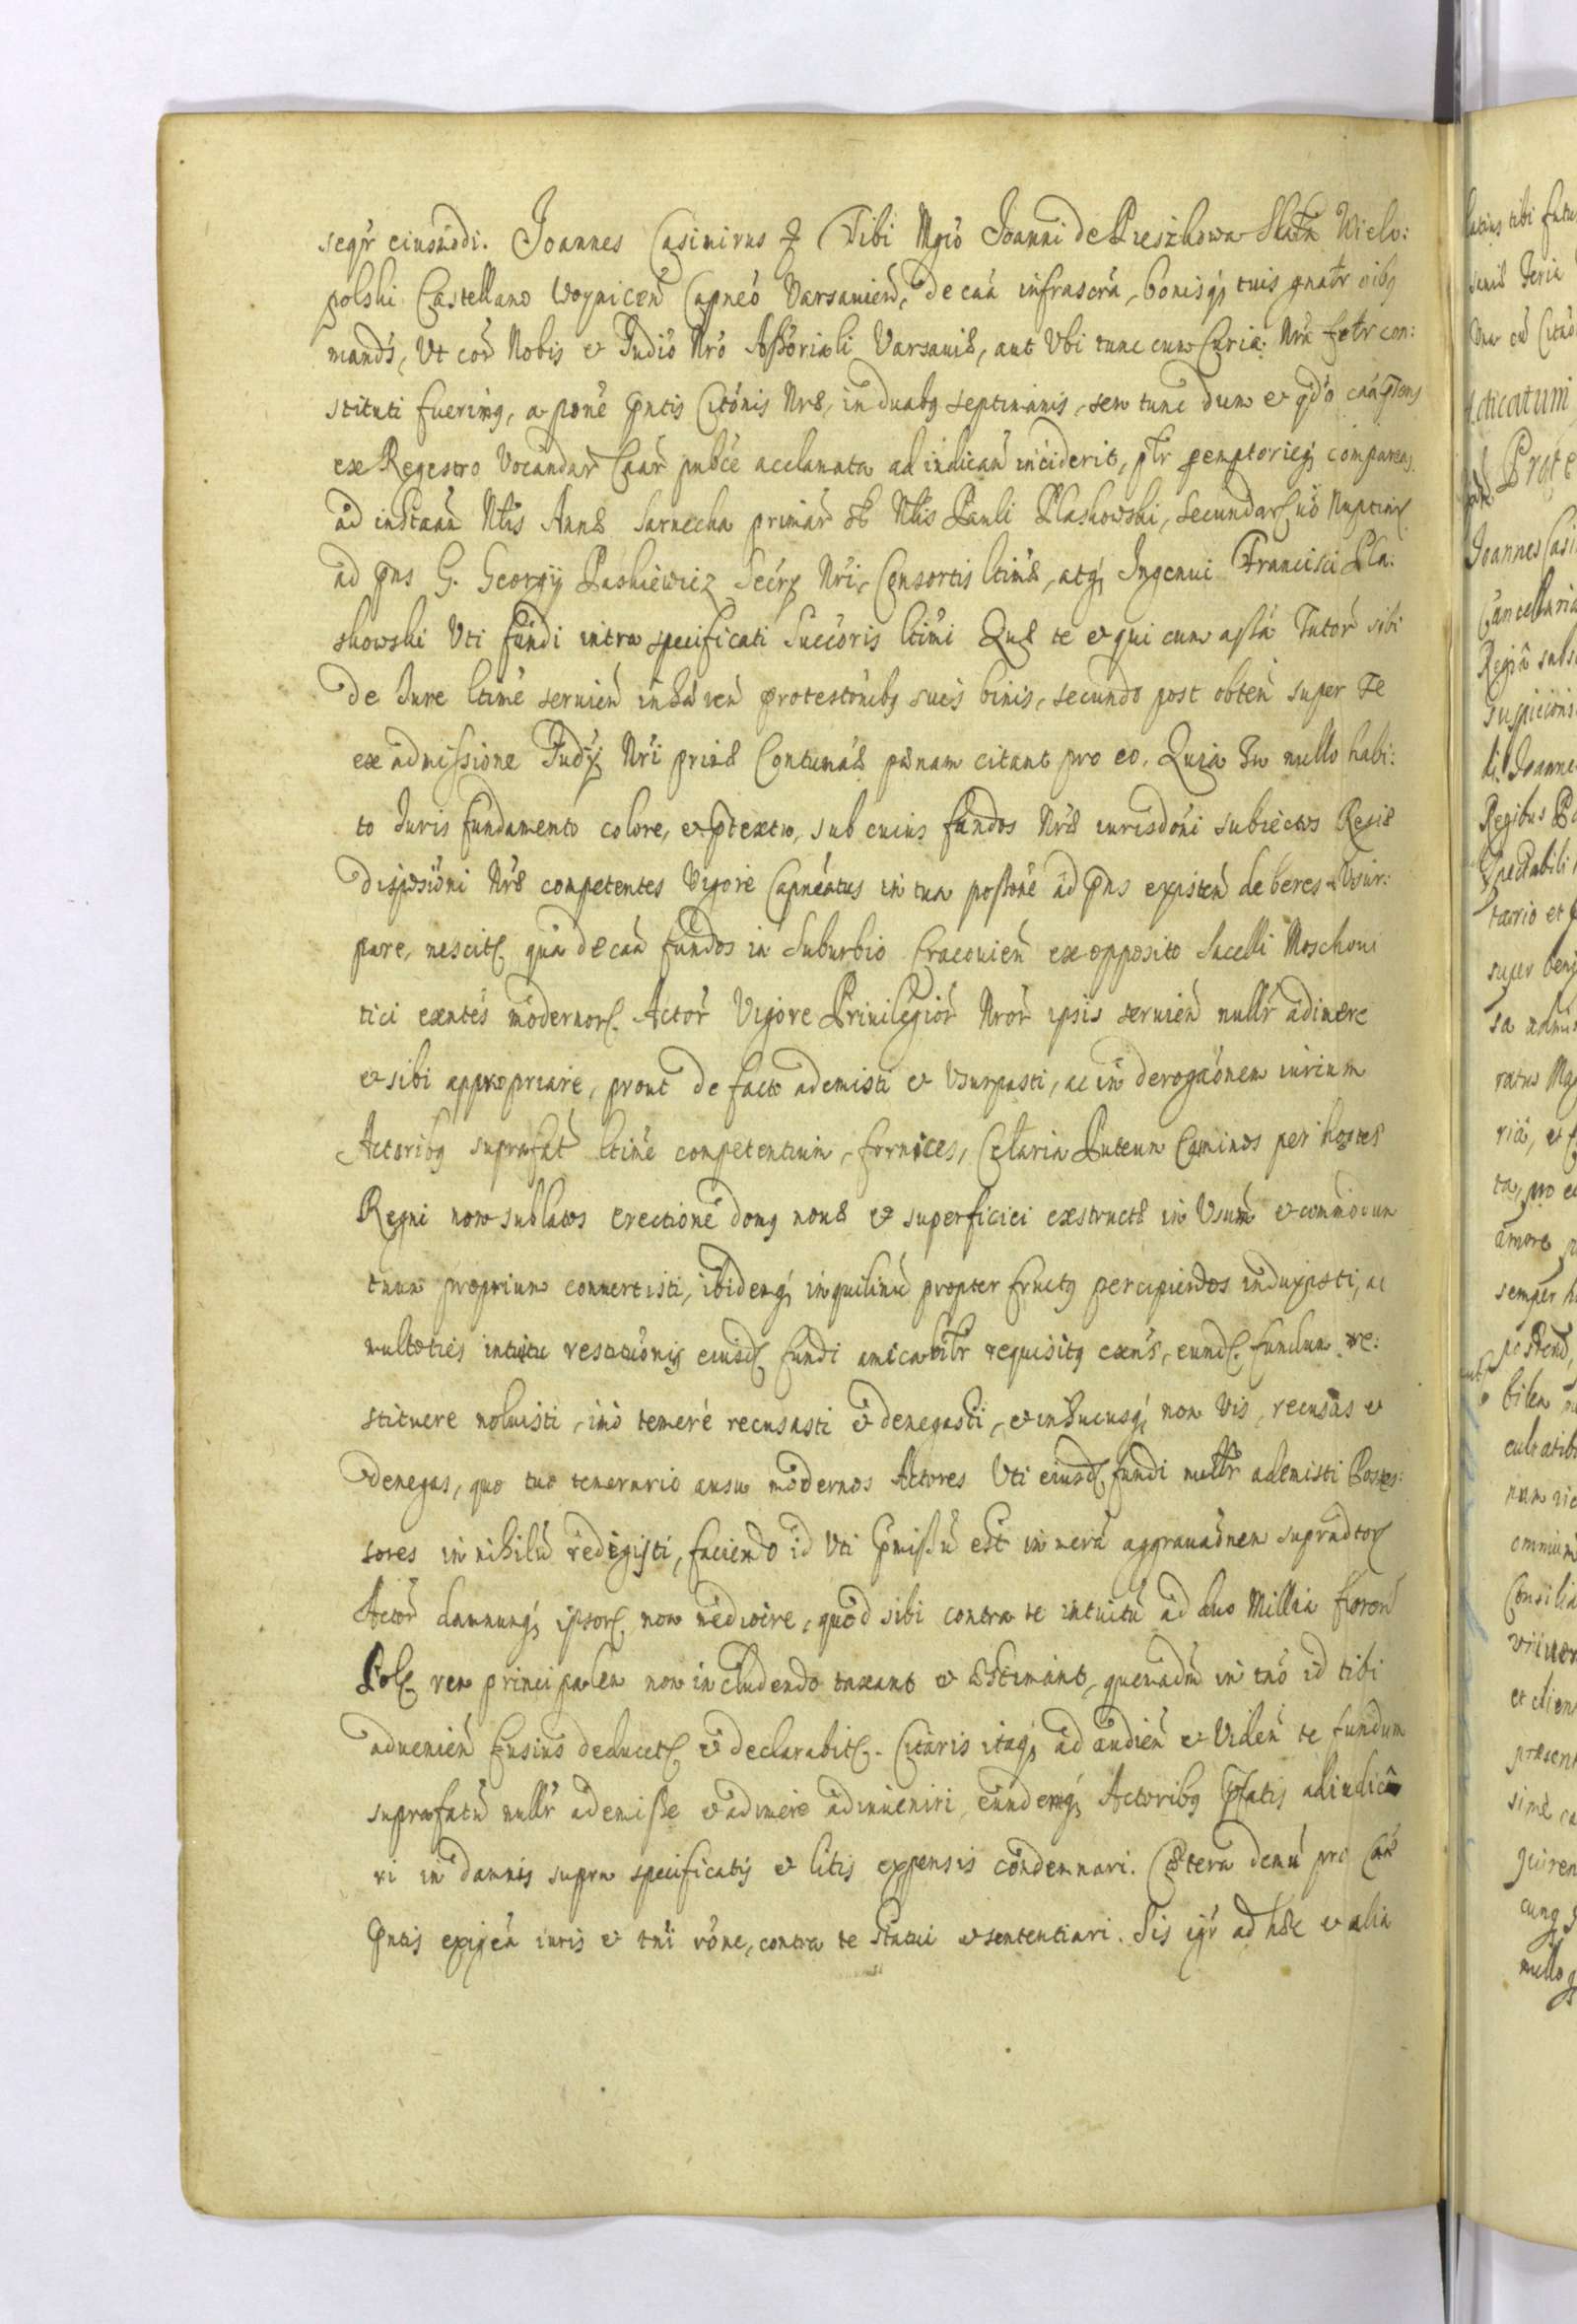 seqr̃ eiusmodi. Joannes Casimirus &c Tibi Mgco Joanni de Pieszkowa Skała Wielo:
polski Castellano Woynicen̄ Capneo Varsavien̄, de caã infrascrã, bonisq; tuis gnãlr oĩbq
mandš, Vt corã Nobis et Judio Nro Assoriali Varsaviæ, aut Vbi tunc cum Curia Nra fotr con:
stituti fuerimq, a põne pntis Citonis Nræ, in duabq septimanis, seu tunc dum et qdo caã pens
ex Regestro Vocandar̃ Caar̃ pubce acclamata ad indicañ inciderit, ptr peremptorieq; compareas.
ad instaañ Nlis Annæ Sarnecka primar̃ ol Nlis Pauli Płaskowski, secundar̃ uo Nuptiar̃
ad pns G. Georgij Paskiewicz Secrẏ Nri, Consortis ltimæ, atq; Ingenui Francisci Pła:
skowski Vti fundi intra specificati Succoris ltimi Quæ te et qui cum assa Tutor̃ sibi
de Jure ltime servien̄ inhæren̄ protestonibq suis binis, secundo post obten̄ super Te
ex admissione Judÿ Nri primæ Contumaæ pœnam citant pro eo. Quia Tu nullo habi:
to Juris fundamento colore, et ptextu, sub cuius fundos Nræ iurisdoni subiectos Regiæ
dispsioni Nræ competentes Vigore Capneatus in tua possone ad pns existen̄ deberes Vsur:
pare, nescit~ qua de caã fundos in Suburbio Cracovien̄ ex opposito Sacelli Moschovi
tici exntes modernor~ Actor̃ Vigore Privilegior̃ Nror̃ ipsis servien̄ nullr̃ adimere
et sibi appropriare, prout de facto ademisti et Vsurpasti, ac in derogaonem iurium
Actoribq suprafat̃ ltime competentium, fornices, Cellaria Puteum Caminos per hostes
Regni non sublatos erectione domq novæ et superficiei exstructæ in Vsum et commodum
tuum proprium convertisti, ibidemq; inquilinũ propter fructq percipiendos induxisti, ac
multoties intuitu restituonis eiusd~ fundi amicabilr̃ requisitq exns, eund~ fundum re:
stituere noluisti, imo temere recusasti et denegasti, et in hucusq; non Vis, recusas et
denegas, quo tuo temerario ausu modernos Actores Vti eiusd~ fundi nullr̃ ademisti Posses:
sores in nihilũ redegisti, faciendo id Vti pmissũ est in merã aggravaonem supradtor~
Actor̃ damnumq; ipsor~ non mediocre, quod sibi contra te intuitu ad duo Millia floren̄
Pol~ rem principalem non includendo taxant et æstimant, quemadm̃ in tno id tibi
advenien̄ fusius deducet~ et declarabit~. Citaris itaq; ad audien̄ et Viden̄ te fundum
suprafatũ nullr̃ ademisse et adimere adinveniri, eundemq; Actoribq pfatis adiudica
ri in damnis supra specificatis et litis expensis condemnari. Cætera demũ pro Caa
pntis exigeñ iuris et tni rone, contra te Statui et sententiari. Sis igr̃ ad hæc et alia